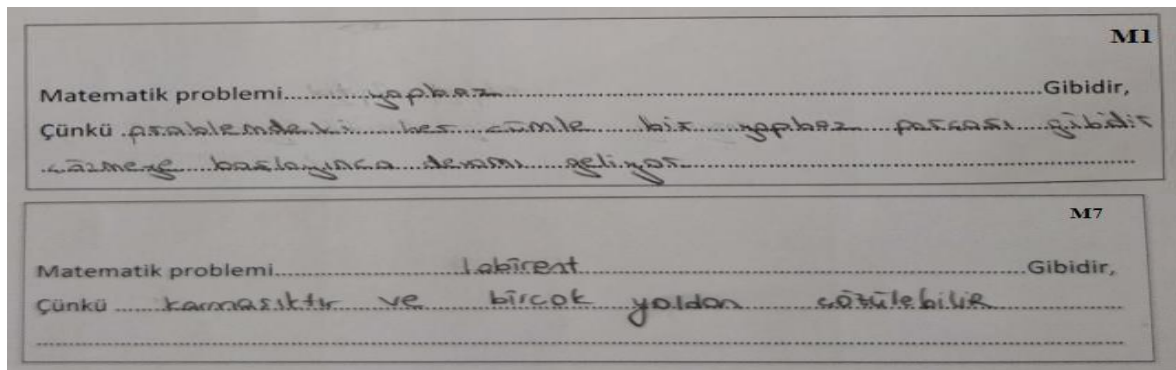 M1
Matematik problemi............yapboz............Gibidir,
Çünkü problemdeki her cümle bir yapboz parçası gibidir
çözmeye başlayınca devamı geliyor
M7
Matematik problemi............Labirent............Gibidir,
Çünkü ......karmaşıktır ve birçok yoldan çözülebilir